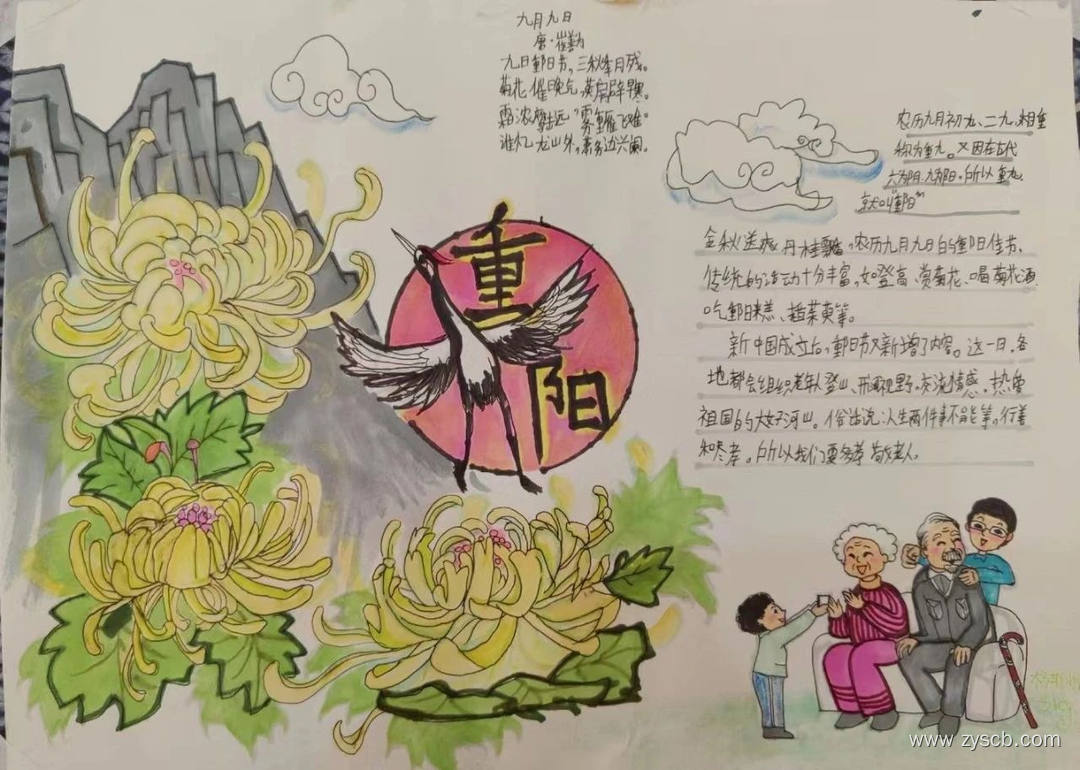 九月九日
唐·崔善为
九日重阳节，三秋季月残。
菊花催晚气，萸房辟早寒。
霜浓鹰击远，雾重雁飞难。
谁忆龙山外，萧条边兴阑。
重
阳
农历九月初九、二九相重
称为重九。又因在古代
六为阴、九为阳，所以重九
就叫"重阳"
金秋送爽，丹桂飘香，农历九月九日的重阳佳节，
传统的活动十分丰富，如登高、赏菊花、喝菊花酒
吃重阳糕、插茱萸等。
新中国成立后，重阳节又新增了内容。这一日，各
地都会组织老年人登山，开阔视野、交流情感、热爱
祖国的大好河山。俗话说：人生两件事不能等，行善
和尽孝。所以我们要多尊敬老人。
www.zyscb.com